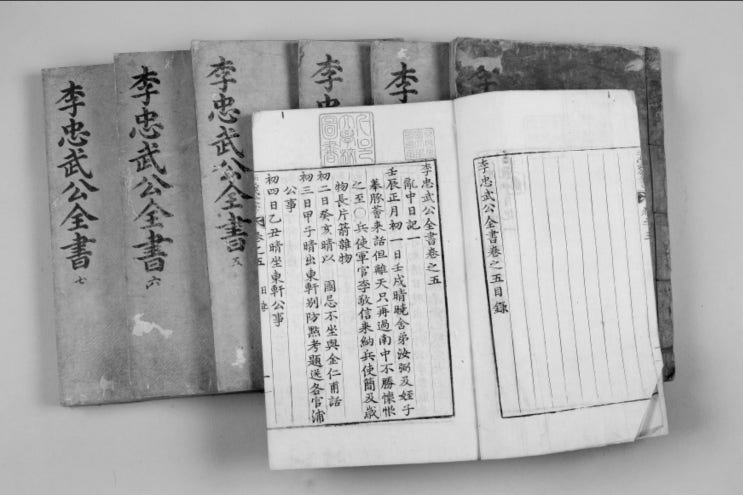 李忠武公全書
七
李忠武公全書
六
李忠武公全書
五
李忠
李
李忠武公全書卷之五目錄
李忠武公全書卷之五
亂中日記一
壬辰正月初一日壬戌晴曉舍弟汝弼及姪子
菶豚薈來話但離天只再過南中不勝懷恨
之至○兵使軍官李敬信來納兵使簡及歲
物長片箭雜物
初二日癸亥晴以 國忌不坐與金仁甫話
初三日甲子晴出東軒別防點考題送各官浦
公事
初四日乙丑晴坐東軒公事